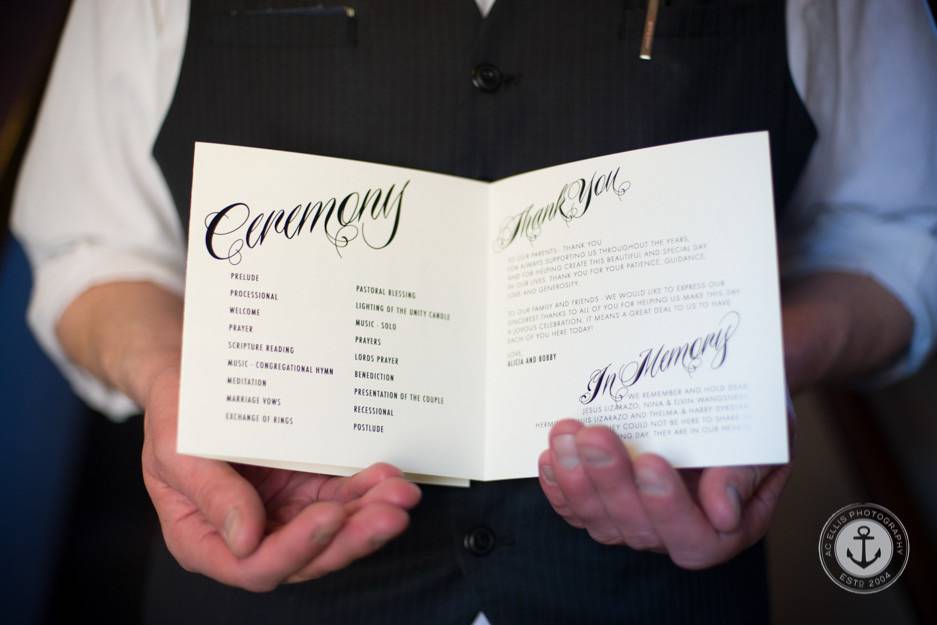 Ceremony
PRELUDE
PROCESSIONAL
WELCOME
PRAYER
SCRIPTURE READING
MUSIC - CONGREGATIONAL HYMN
MEDITATION
MARRIAGE VOWS
EXCHANGE OF RINGS
PASTORAL BLESSING
LIGHTING OF THE UNITY CANDLE
MUSIC - SOLO
PRAYERS
LORDS PRAYER
BENEDICTION
PRESENTATION OF THE COUPLE
RECESSIONAL
POSTLUDE
Thank You
TO OUR PARENTS - THANK YOU
FOR ALWAYS SUPPORTING US THROUGHOUT THE YEARS,
AND FOR HELPING CREATE THIS BEAUTIFUL AND SPECIAL DAY
IN OUR LIVES. THANK YOU FOR YOUR PATIENCE, GUIDANCE,
LOVE AND GENEROSITY.
TO OUR FAMILY AND FRIENDS - WE WOULD LIKE TO EXPRESS OUR
SINCEREST THANKS TO ALL OF YOU FOR HELPING US MAKE THIS DAY
A JOYOUS CELEBRATION. IT MEANS A GREAT DEAL TO US TO HAVE
EACH OF YOU HERE TODAY!
LOVE,
ALICIA AND BOBBY
In Memory
WE REMEMBER AND HOLD DEAR,
JESUS LIZARAZO, NINA & ELVIN
LIZARAZO AND THELMA & HARRY
THEY COULD NOT BE HERE TO SHARE
DAY, THEY ARE IN OUR
AC ELLIS PHOTOGRAPHY
ESTD 2004